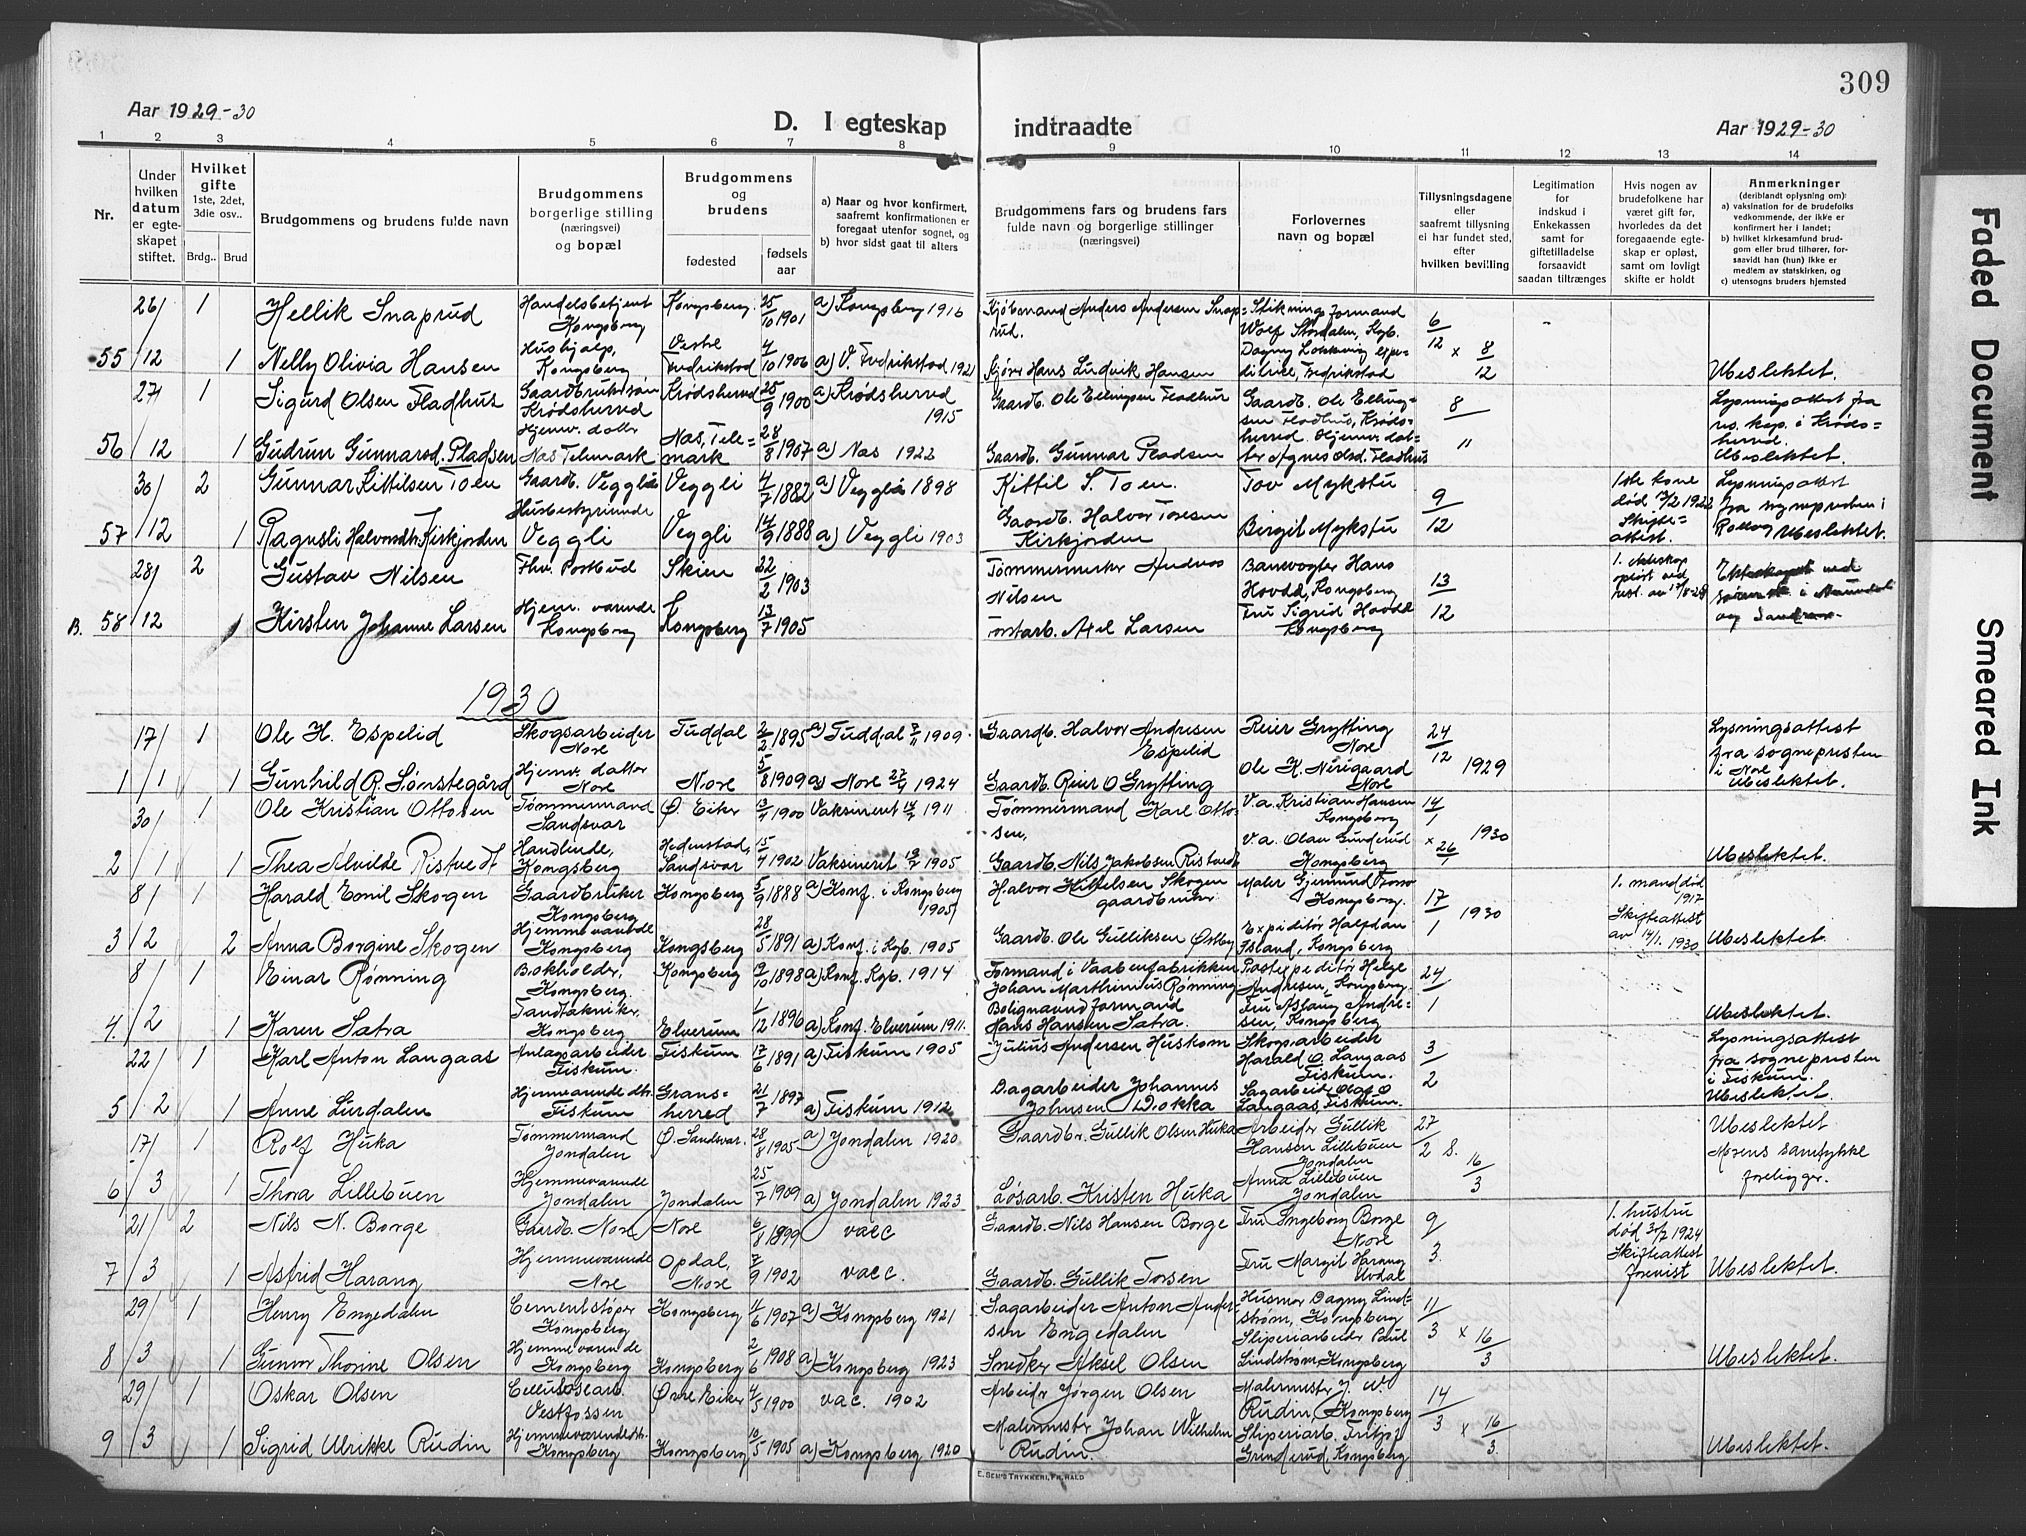 309
Aar 1929-30
D. I egteskap indtraadte
Aar 1929-30
1 2 3 4 5 6 7 8 9 10 11 12 13 14
Nr.
Under hvilken datum er egteskapet stiftet.
Hvilket gifte 1ste, 2det, 3die osv..
Brdg.. Brud
Brudgommens og brudens fulde navn
Brudgommens borgerlige stilling (næringsvei) og bopæl
Brudgommens og brudens
fødested
fødsels aar
a) Naar og hvor konfirmert, saafremt konfirmationen er foregaat utenfor sognet, og
b) hvor sidst gaat til alters
Brudgommens fars og brudens fars fulde navn og borgerlige stillinger (næringsvei)
Forlovernes navn og bopæl
Tillysningsdagene eller saafremt tillysning ei har fundet sted, efter hvilken bevilling
Legitimation for indskud i Enkekassen samt for giftetilladelse forsaavidt saadan tiltrænges
Hvis nogen av brudefolkene har været gift før, hvorledes da det foregaaende egteskap er opløst, samt om lovligt skifte er holdt
Anmerkninger (deriblandt oplysning om):
a) vaksination for de brudefolks vedkommende, der ikke er konfirmert her i landet;
b) hvilket kirkesamfund brudgom eller brud tilhører, forsaavidt han (hun) ikke er medlem av statskirken, og
c) utensogns bruders hjemsted
26/ 1 Hellik Snaprud Handelsbetjent Kongsberg Kongsberg 25/10 1901 a) Kongsberg 1916 Kjøbmand Anders Andersen Snaprud. Stikningsformand Kgb. 6/12 x 8/12
55 12 1 Nelly Olivia Hansen Hushjælp, Kongsberg Vestre Fredrikstad 4/10 1906 a) V. Fredrikstad 1921 Kjører Hans Ludvik Hansen Fredrikstad Ubeslektet.
27/ 1 Sigurd Olsen Fladhus Gaardbrukersøn Krødsherred Krødsherred 25/9 1900 a) Krødsherred 1915 Gaardb. Ole Ellingsen Fladhus Gaardb. Ole Ellingsen Fladhus, Krødsherred. 8/11 Lysningsattest fra res. kap. i Krødsherred.
56 12 1 Gudrun Gunnarsd. Pladsen Hjemv. datter Næs Telemark Næs, Telemark 28/8 1907 a) Næs 1922 Gaardb. Gunnar Pladsen Hjemv. datter Agnes Olsd. Fladhus Ubeslektet.
30/ 2 Gunnar Kittilsen Toen Gaardb. Veggli Veggli 4/7 1882 a) Veggli 1898 Kittil S. Toen. Tov Mykstu 9/12 1ste kone død 1922 Skifteattest. Lysningsattest fra sognepresten i Rollag
57 12 1 Ragnhild Halvorsdtr. Kirkjorden Husbestyrerinde Veggli Veggli 14/9 1888 a) Veggli 1903 Gaardb. Halvor Toresen Kirkjorden Birgit Mykstu Ubeslektet.
28/ 2 Gustav Nilsen Fhv. Postbud Skien 22/2 1903 Tømmermester Andreas Nilsen Banevogter Hans Hovdd, Kongsberg 13/12
B. 58 12 1 Kirsten Johanne Larsen Hjem. værende Kongsberg Kongsberg 13/7 1905 Tomtarb. Axel Larsen Fru Sigrid Hovdd Kongsberg
1930
17/ 1 Ole H. Espelid Skogsarbeider Nore Tuddal 2/2 1895 a) Tuddal 7/11 1909 Gaardb. Halvor Andresen Espelid Reier Grytting Nore 24/12 1929 Lysningsattest fra sognepresten i Nore
1 1 1 Gunhild R. Sønstegård Hjemv. datter Nore Nore 5/8 1909 a) Nore 27/9 1924 Gaardb. Reier O Grytting Ole K. Nerigaard Nore Ubeslektet.
30/ 1 Ole Kristian Ottosen Tømmermand Sandsvær Ø. Eiker 13/4 1900 Vaksinert 14/7 1911 Tømmermand Karl Ottosen, V. a. Kristian Hansen Kongsberg 14/1 x 26/1 1930
2 1 1 Thea Alvilde Ristvedt Handlende, Kongsberg Hedenstad, Sandsvær 15/4 1902 Vaksineret 19/7 1905 Gaardb. Nils Jakobsen Ristvedt V. a. Olav Gunderud Kongsberg Ubeslektet.
8/ 1 Harald Emil Skogen Gaardbruker Kongsberg Kongsberg 5/9 1888 a) Konf. i Kongsberg 1905 Halvor Kittelsen Skogen gaardbruker Maler Gjermund Fosso Kongsberg. 17/1 1930 1. mand død 1917 Skifteattest av 14/1. 1930
3 2 2 Anna Borgine Skogen Hjemmeværende Kongsberg Kongsberg 28/5 1891 a) Konf. i Kgb. 1905 Gaardb. Ole Gulliksen Østby Expeditør Halfdan Island, Kongsberg Ubeslektet.
8/ 1 Einar Rønning Bokholder, Kongsberg. Kongsberg 9/10 1898 a) Konf. Kgb. 1914 Formand i Vaabenfabrikken Johan Marthinius Rønning Postexpeditør Helge Andresen, Kongsberg. 24/1
4. 2 1 Karen Sætra Tandtekniker Kongsberg Elverum 1/12 1896 a) Konf. Elverum 1911. Hans Hansen Sætra. Fru Aslaug Andresen, Kongsberg Ubeslektet.
22/ 1 Karl Anton Langaas Anlægsarbeider Fiskum. Fiskum 17/6 1891 a) Fiskum 1905 Julius Andersen Huskom Skogsarbeider Harald O. Langaas Fiskum. 3/2 Lysningsattest fra sognepresten i Fiskum.
5 2 1 Anne Lurdalen Hjemmeværende dtr. Fiskum Gransherred 21/7 1897 a) Fiskum 1912 Dagarbeider Johannes Johnsen Dokka Sagarbeider Olaf O Langaas, Fiskum. Ubeslektet.
17/ 1 Rolf Huka Tømmermand Jondalen Ø. Sandsvær. 28/8 1905 a) Jondalen 1920 Gaardbr. Gullik Olsen Huka Arbeider Gullik Hansen Lillebuen Jondalen 27/2 S. 16/3 Ubeslektet. Morens samtykke foreligger.
6 3 1 Thora Lillebuen Hjemmeværende Jondalen Jondalen 25/7 1909 a) Jondalen 1923 Løsarb. Kristen Huka Anna Lillebuen Jondalen
21/ 2 Nils N. Borge Gaardb. Nore Nore 6/8 1899 vacc Gaardb. Nils Hansen Borge Fru Ingeborg Borge Nore 9/3. 1. hustru død 3/7 1924 Skifteattest forevist
7 3 1 Astrid Harang Hjemmeværende Nore Opdal, Nore 7/9 1902 vacc. Gaardb. Gullik Torsen Fru Margit Harang Uvdal Ubeslektet.
29/ 1 Henry Engedalen Cementstøper Kongsberg Kongsberg 4/6 1907 a) Kongsberg 1921 Sagarbeider Anton Andersen Engedalen Husmor Dagny Lindstrøm, Kongsberg 11/3 x 16/3
8 3 1 Gunvor Thorine Olsen Hjemmeværende Kongsberg Kongsberg 2/6 1908 a) Kongsberg 1923 Snedker Aksel Olsen Sliperiarbeider Paul Lindstrøm, Kongsberg Ubeslektet.
29/ 1 Oskar Olsen Cellulosearb. Vestfossen Øvre Eiker 4/5 1900 vac. 1902 Arbeider Jørgen Olsen Malermester J. W. Rudin, Kongsberg 14/3 x 16/3.
9 3 1 Sigrid Ulrikke Rudin Hjemmeværende dtr. Kongsberg Kongsberg 10/5 1905 a) Kongsberg 1920 Malermester Johan Wilhelm Rudin. Sliperiarb. Fritjof Grinderud, Kongsberg Ubeslektet.
E. SEM'S TRYKKERI, FR.HALD
Faded Document
Smeared Ink